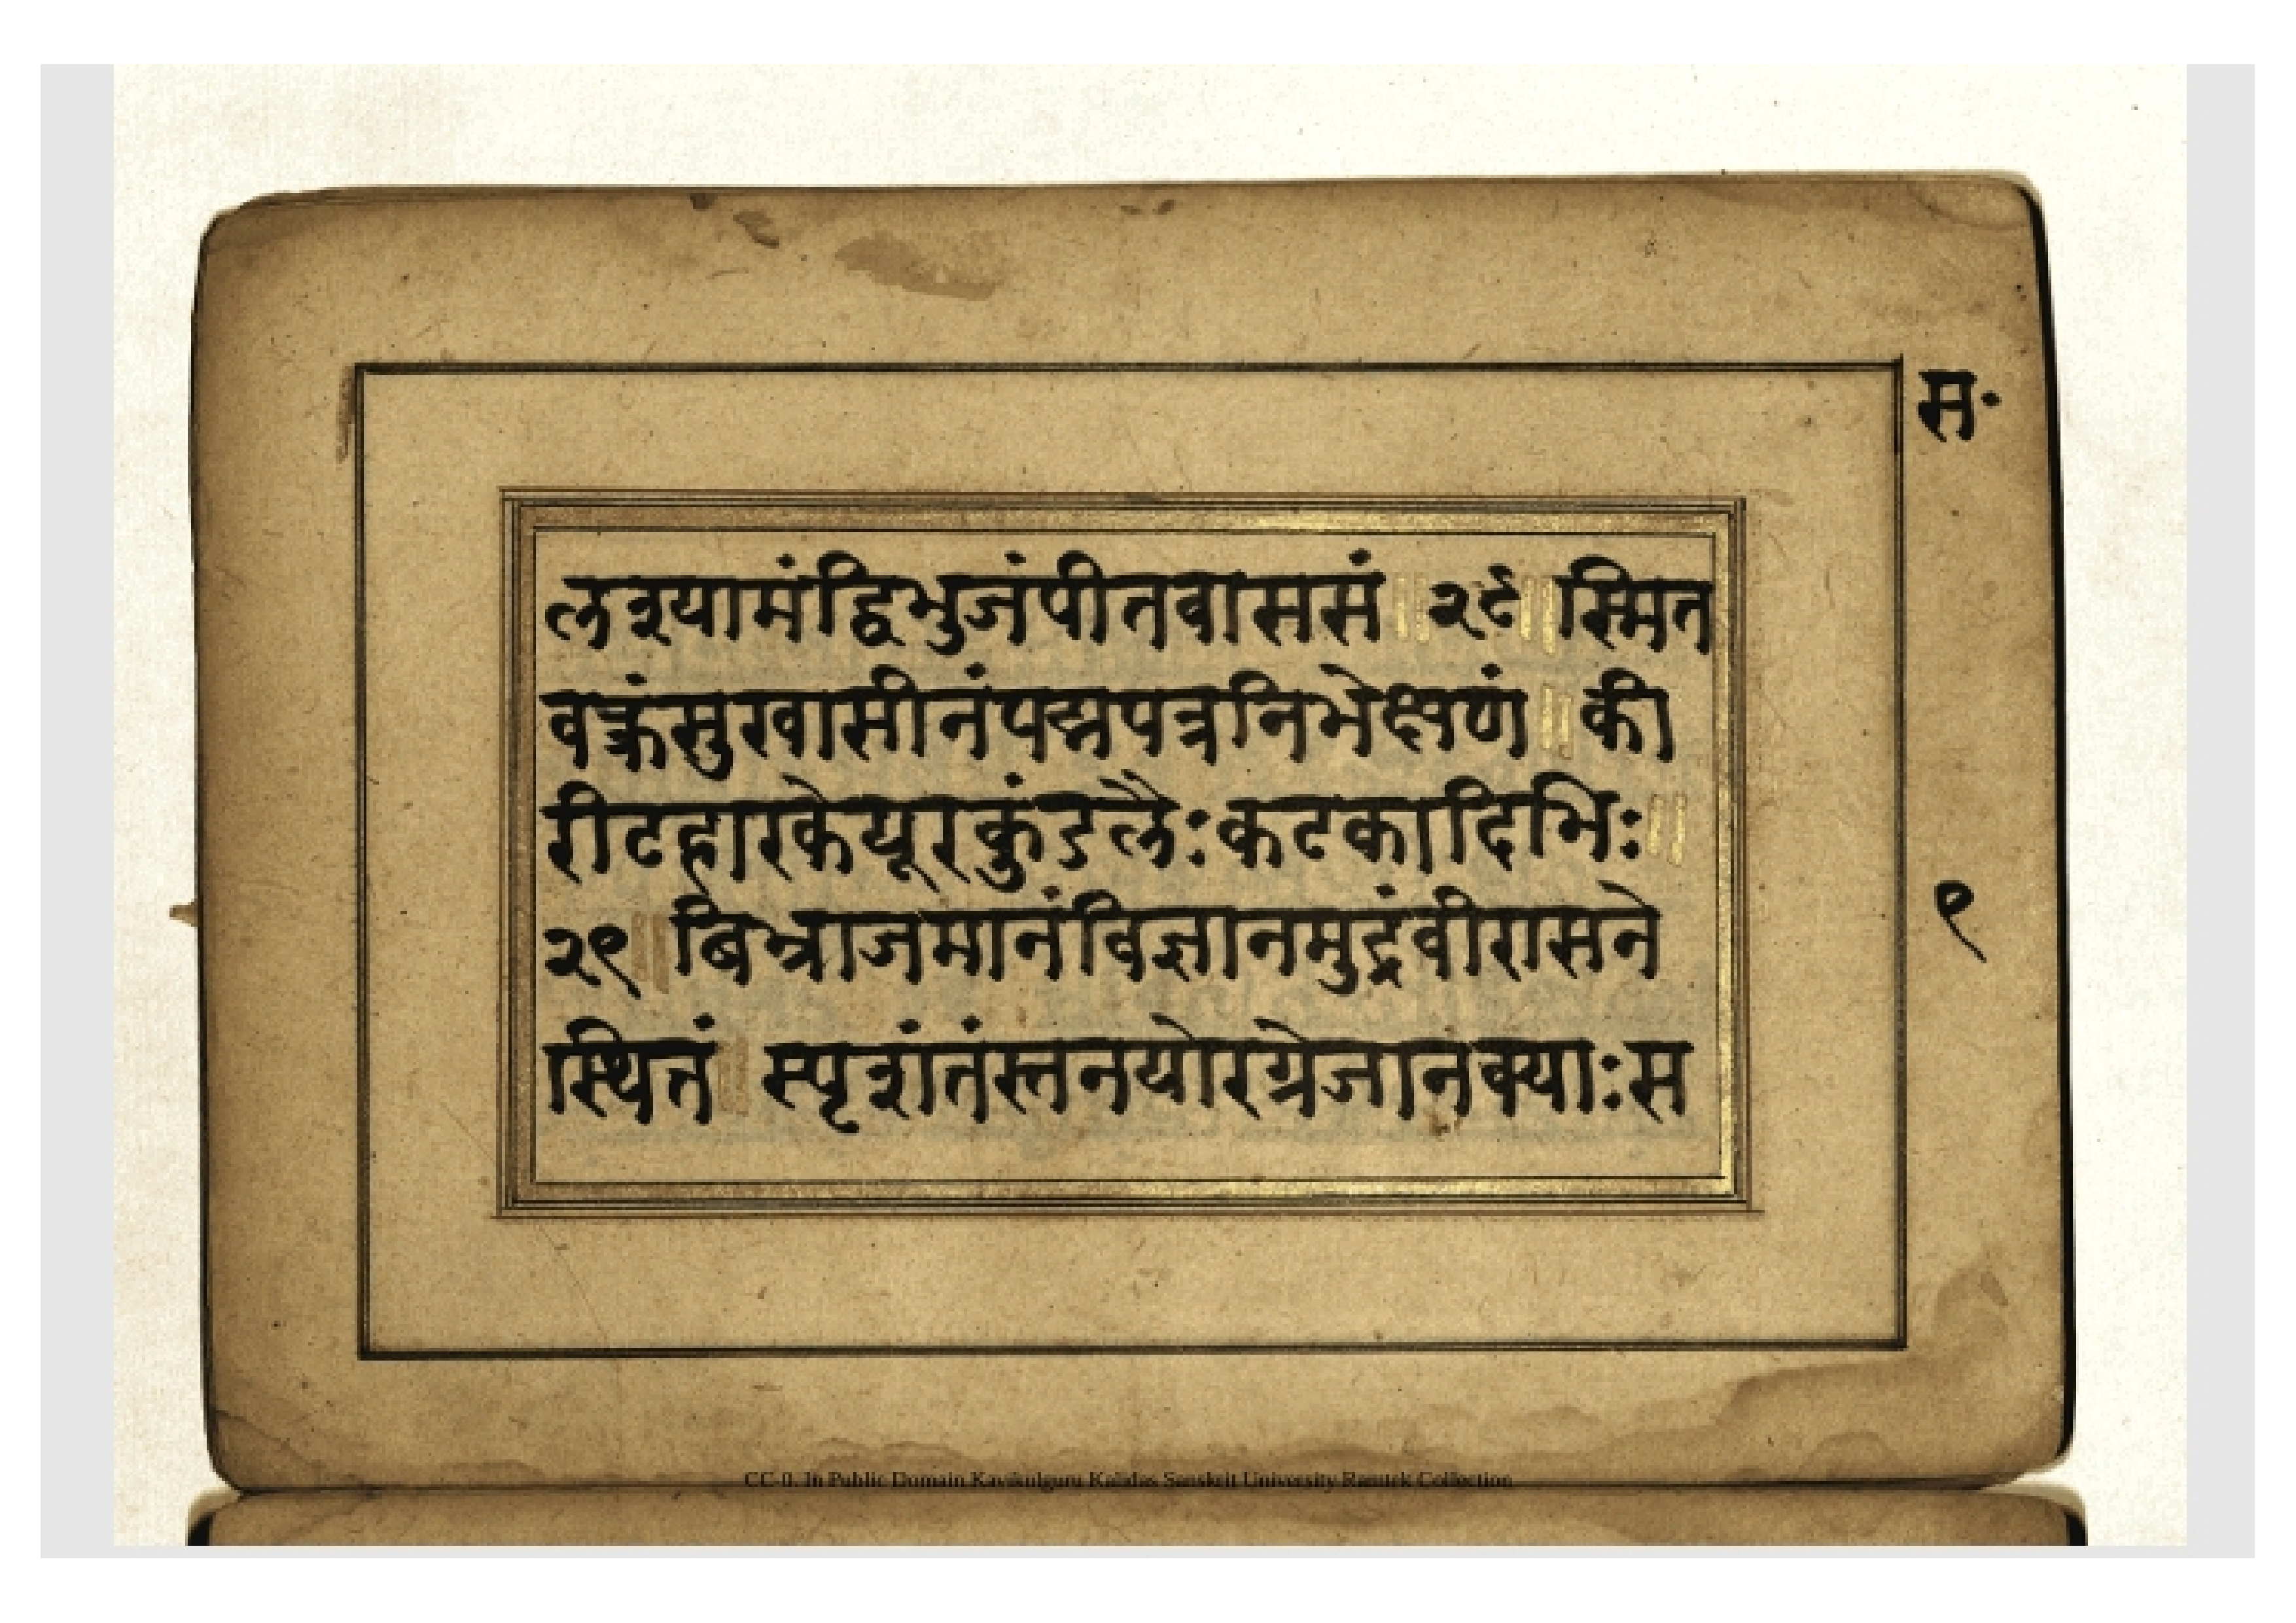 स॰
लश्यामंद्विभुजंपीतवाससं ॥ २८ ॥ स्मित
वक्त्रंसुखासीनंपद्मपत्रनिभेक्षणं ॥ की
रीटहारकेयूरकुंडलैःकटकादिभिः ॥
२९ ॥ बिभ्राजमानंविज्ञानमुद्रंवीरासने
स्थितं ॥ स्पृशंतंस्तनयोरग्रेजानक्याःस
९
CC-0. In Public Domain Kavikulguru Kalidas Sanskrit University Ramtek Collection